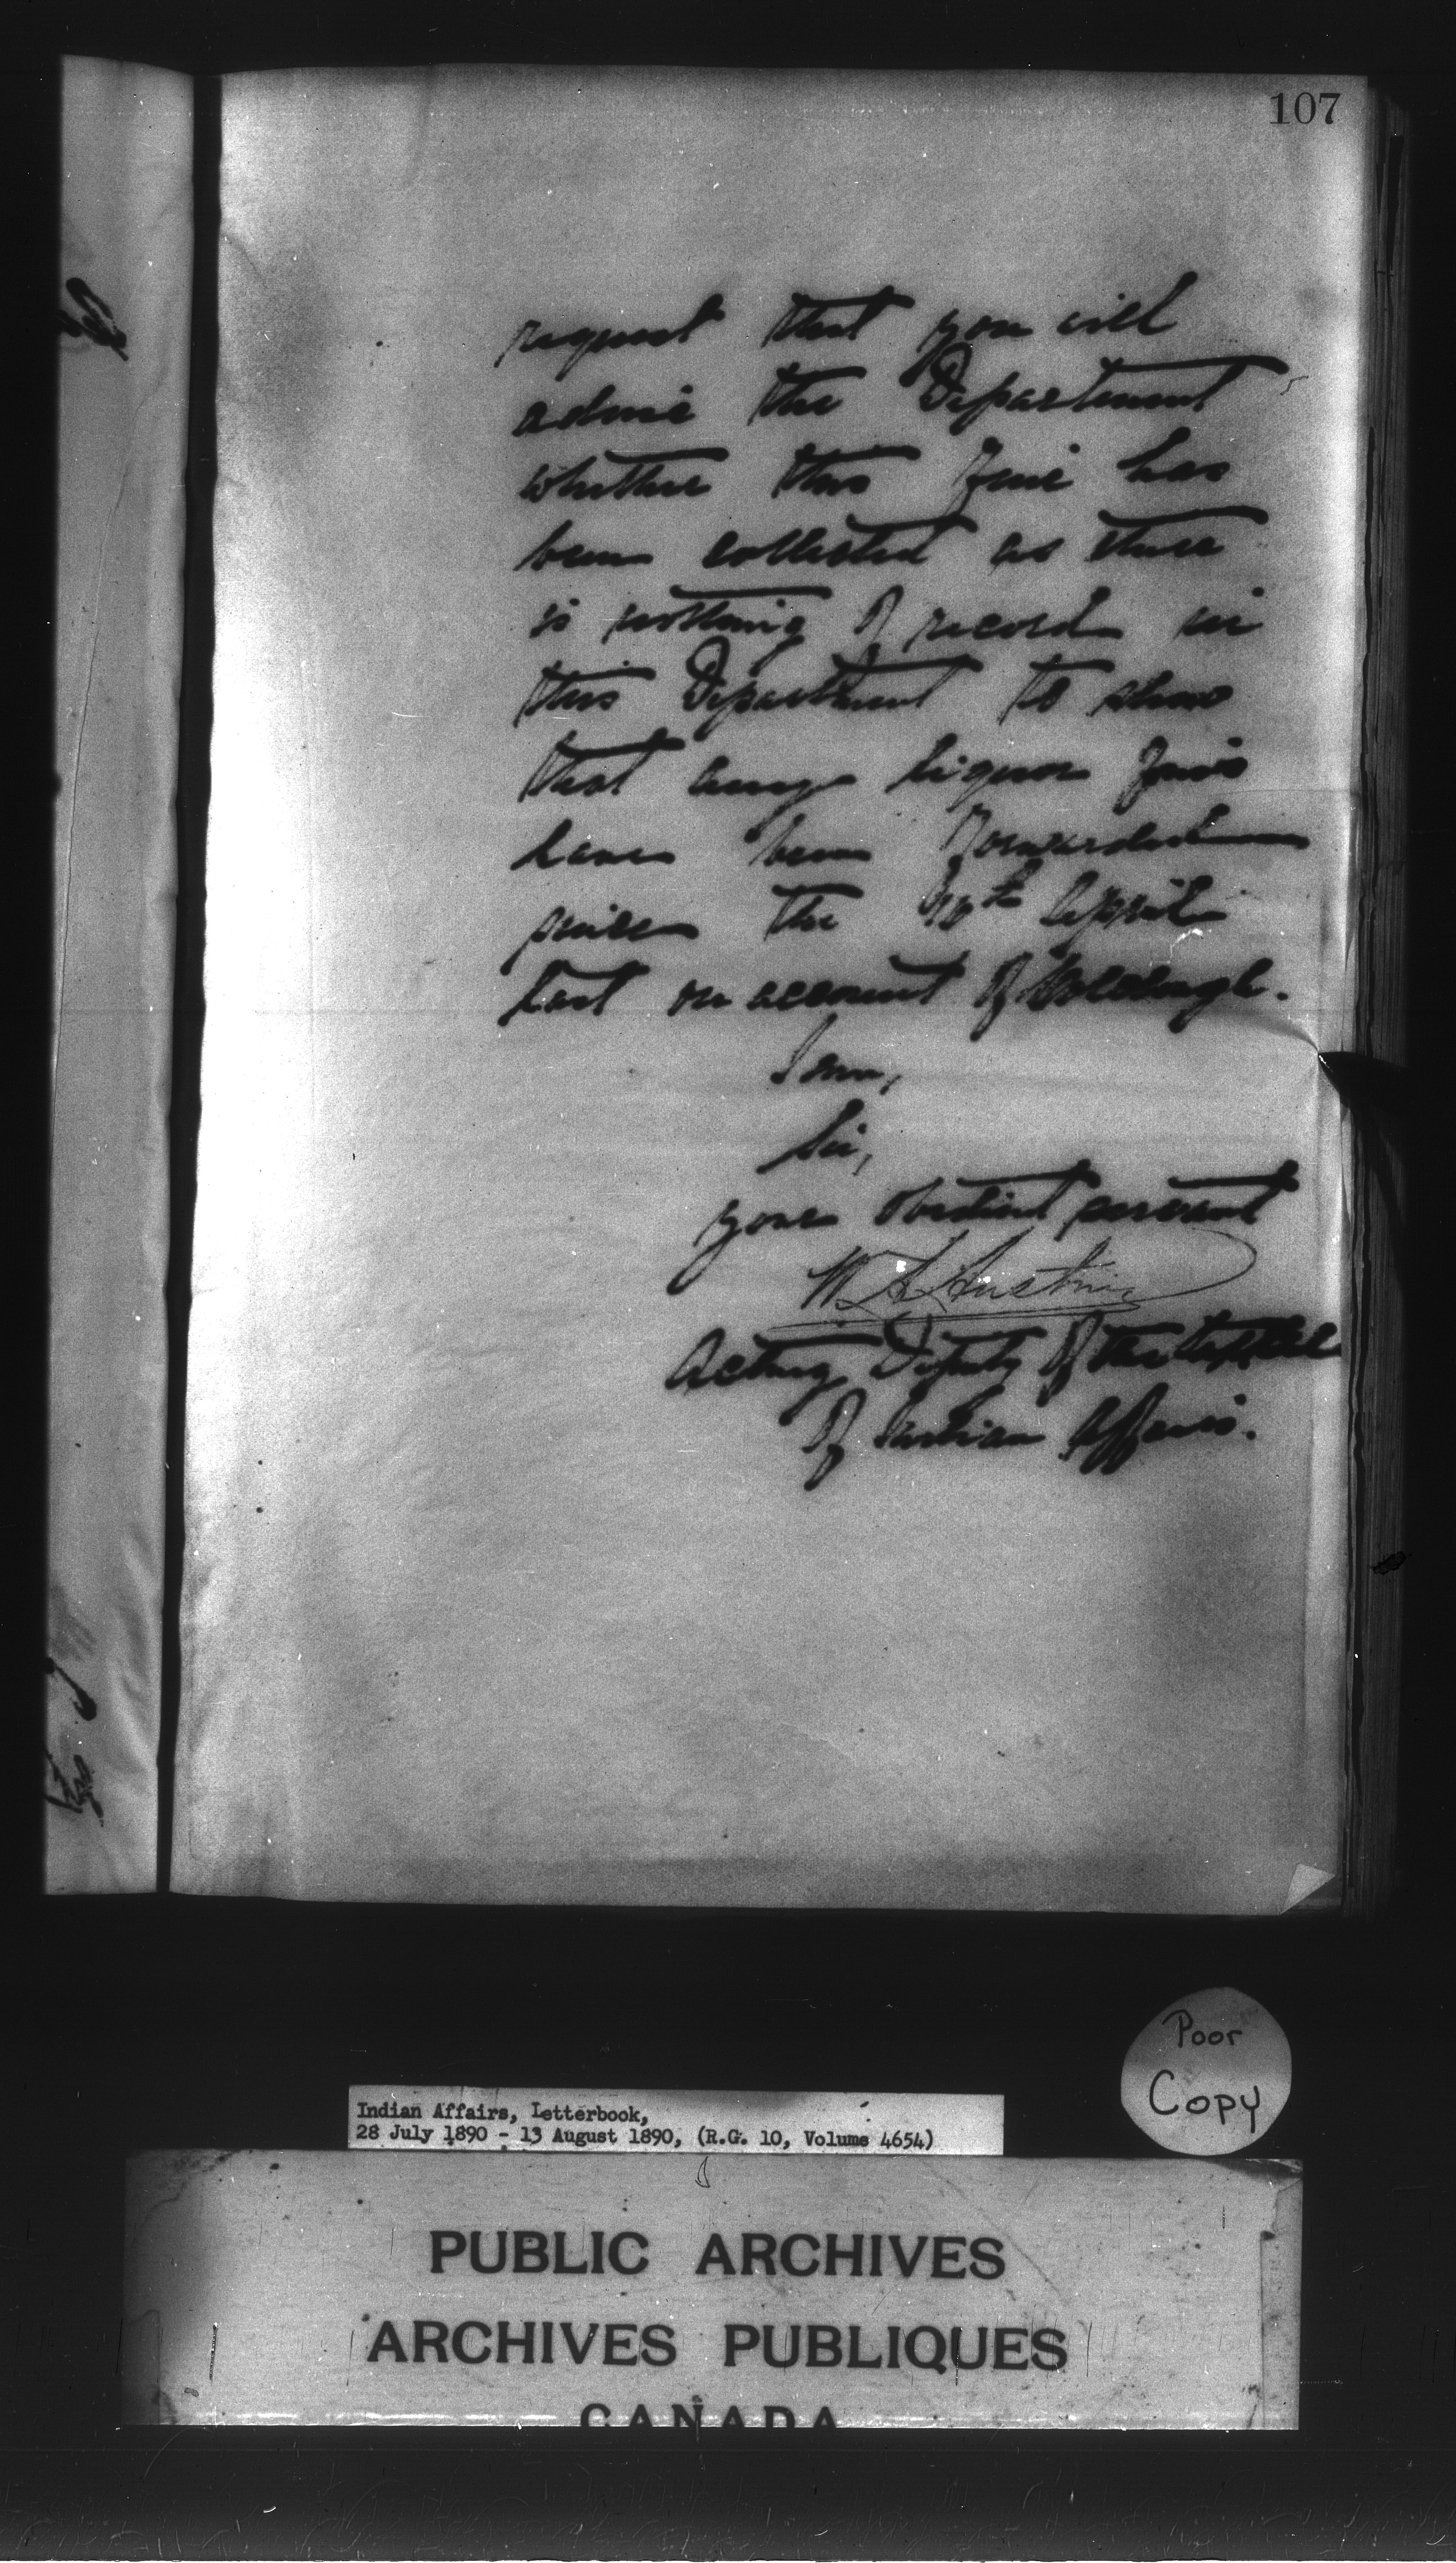 107
request that you will
advise the Department
whether this fine has
been collected as there
is nothing of record in
this Department to show
that any liquor fines
have been forwarded
since the April
last on account of
I am,
Sir,
your obedient servant
Acting Deputy of the Supt Genl
of Indian Affairs.
Poor
Copy
Indian Affairs, Letterbook,
28 July 1890 - 13 August 1890, (R.G. 10, Volume 4654)
PUBLIC ARCHIVES
ARCHIVES PUBLIQUES
CANADA